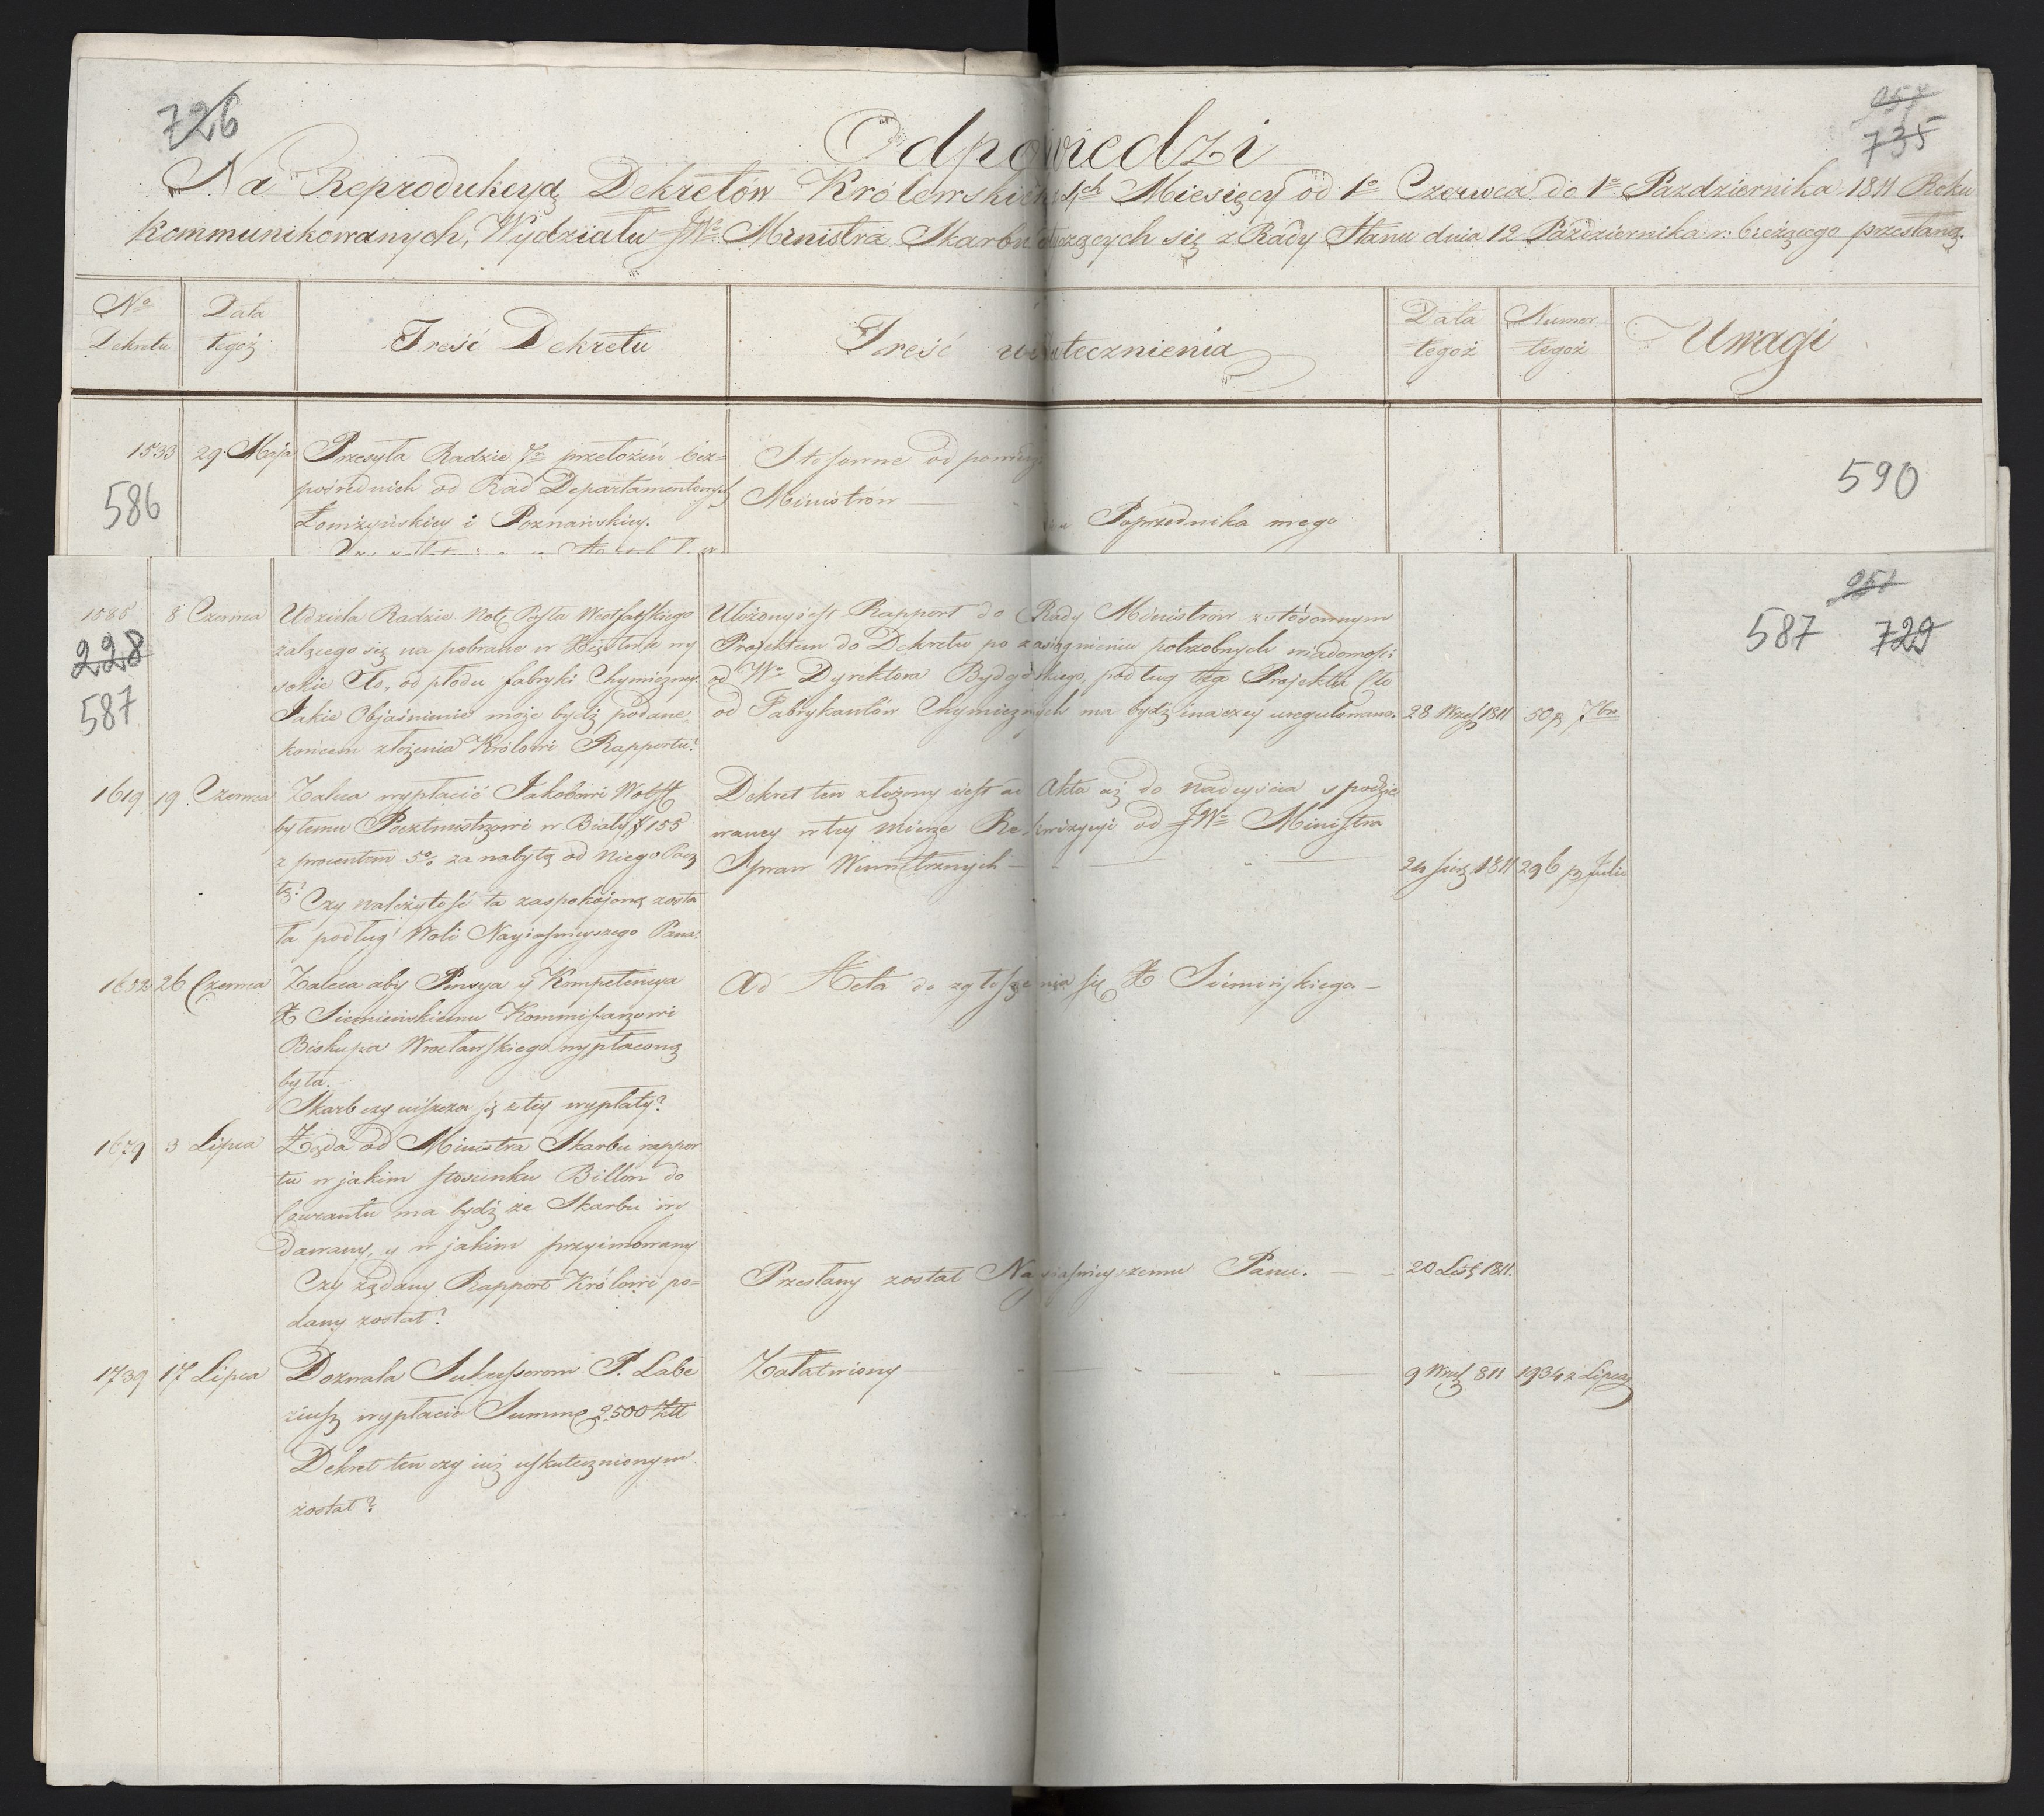 726
957
735
Odpowiedzi
Na Reprodukcyą Dekretów Królewskich 4ch Miesięcy od 1o Czerwca do 1o Pazdziernika 1811 Roku
Kommunikowanych, Wydziału JWo Ministra Skarbu tyczących się z Rady Stanu dnia 12 Pazdziernika r: bieżącego przesłaną.
No Dekretu
Data tegoż
Treść Dekretu
Treść uskutecznienia
Data tegoż
Numer tegoż
Uwagi
1533 29 Maja
Przesyła Radzie przełożeń bez=
pośrednich od Rad Departamentowych
Łomżyńskiey i Poznańskiey.
Stosowne odpowiedzi
Ministrów
Poprzednika mego
586
590
1585 8 Czerwca
Udziela Radzie Notę Posła Westfalskiego
żalącego się na pobrane w Xięstwie wy
sokie Cło, od płodu fabryki Chymiczney
Jakie Objaśnienie może bydź podane
końcem złożenia Królowi Rapportu?
Ułożony jest Rapport do Rady Ministrów z stósownym
Projektem do Dekretu po zasiągnieniu potrzebnych wiadomości
od Wo Dyrektora Bydgoskiego, podług tego Projektu Cło
od Fabrykantów Chymicznych ma bydź inaczey uregulowano.
28 Wrześ 1811
50 p 7bra
228
587
957
587 729
1619 19 Czerwca
Zaleca wypłacić Jakobowi Wolff
byłemu Pocztmistrzowi w Biały # 155
z procentem 5% za nabytą od niego Pocz
tę? Czy należytość ta zaspokojoną zosta
ła podług Woli Nayiaśnieyszego Pana?
Dekret ten złożony jest ad Akta aż do nadeyścia spodzie
waney w tey mierze Rekwizycyi od JWo Ministra
Spraw Wewnętrznych
24 Sierp 1811
296 p Julio
1652 26 Czerwca
Zaleca aby Pensya y Kompetencya
X Siemieńskiemu Kommissarzowi
Biskupa Wrocławskiego wypłaconą
była.
Skarb czy uiszcza się z tey wypłaty?
Ad Acta do zgłoszenia się X Siemieńskiego
1679 3 Lipca
Żąda od Ministra Skarbu rappor
tu w jakim stosunku Billon do
Courantu ma bydź ze Skarbu wy
dawany, y w jakim przyimowany
Czy żądany Rapport Królowi po=
dany został?
Przesłany został Nayiaśnieyszemu Panu.
20 List 1811.
1739 17 Lipca
Dozwala Sukcessorom P. Labe
ziusz wypłacić Summę 2500 Złł
Dekret ten czy iuż uskutecznionym
został?
Załatwiony
9 Wrześ 811
1934 z Lipca